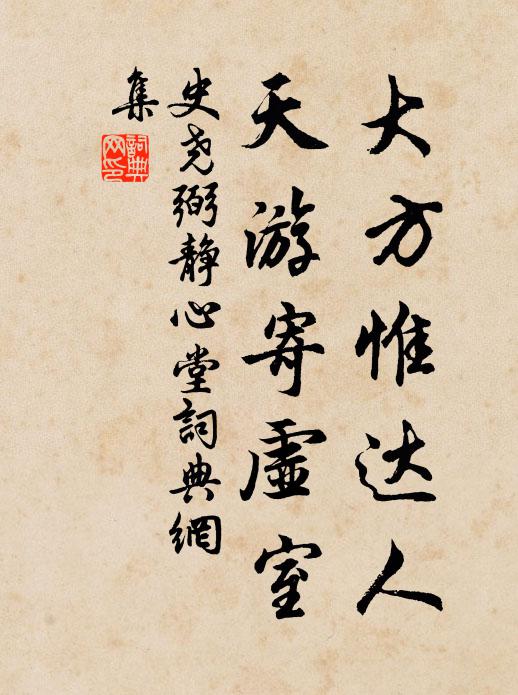 大方惟达人
天游寄虚室
史尧弼静心堂詞典網
集
詞典网印